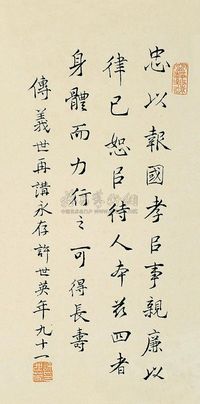 忠以報國孝以事親廉以
律己恕以待人本茲四者
身體而力行之可得長壽
傳義世再講永存許世英年九十一